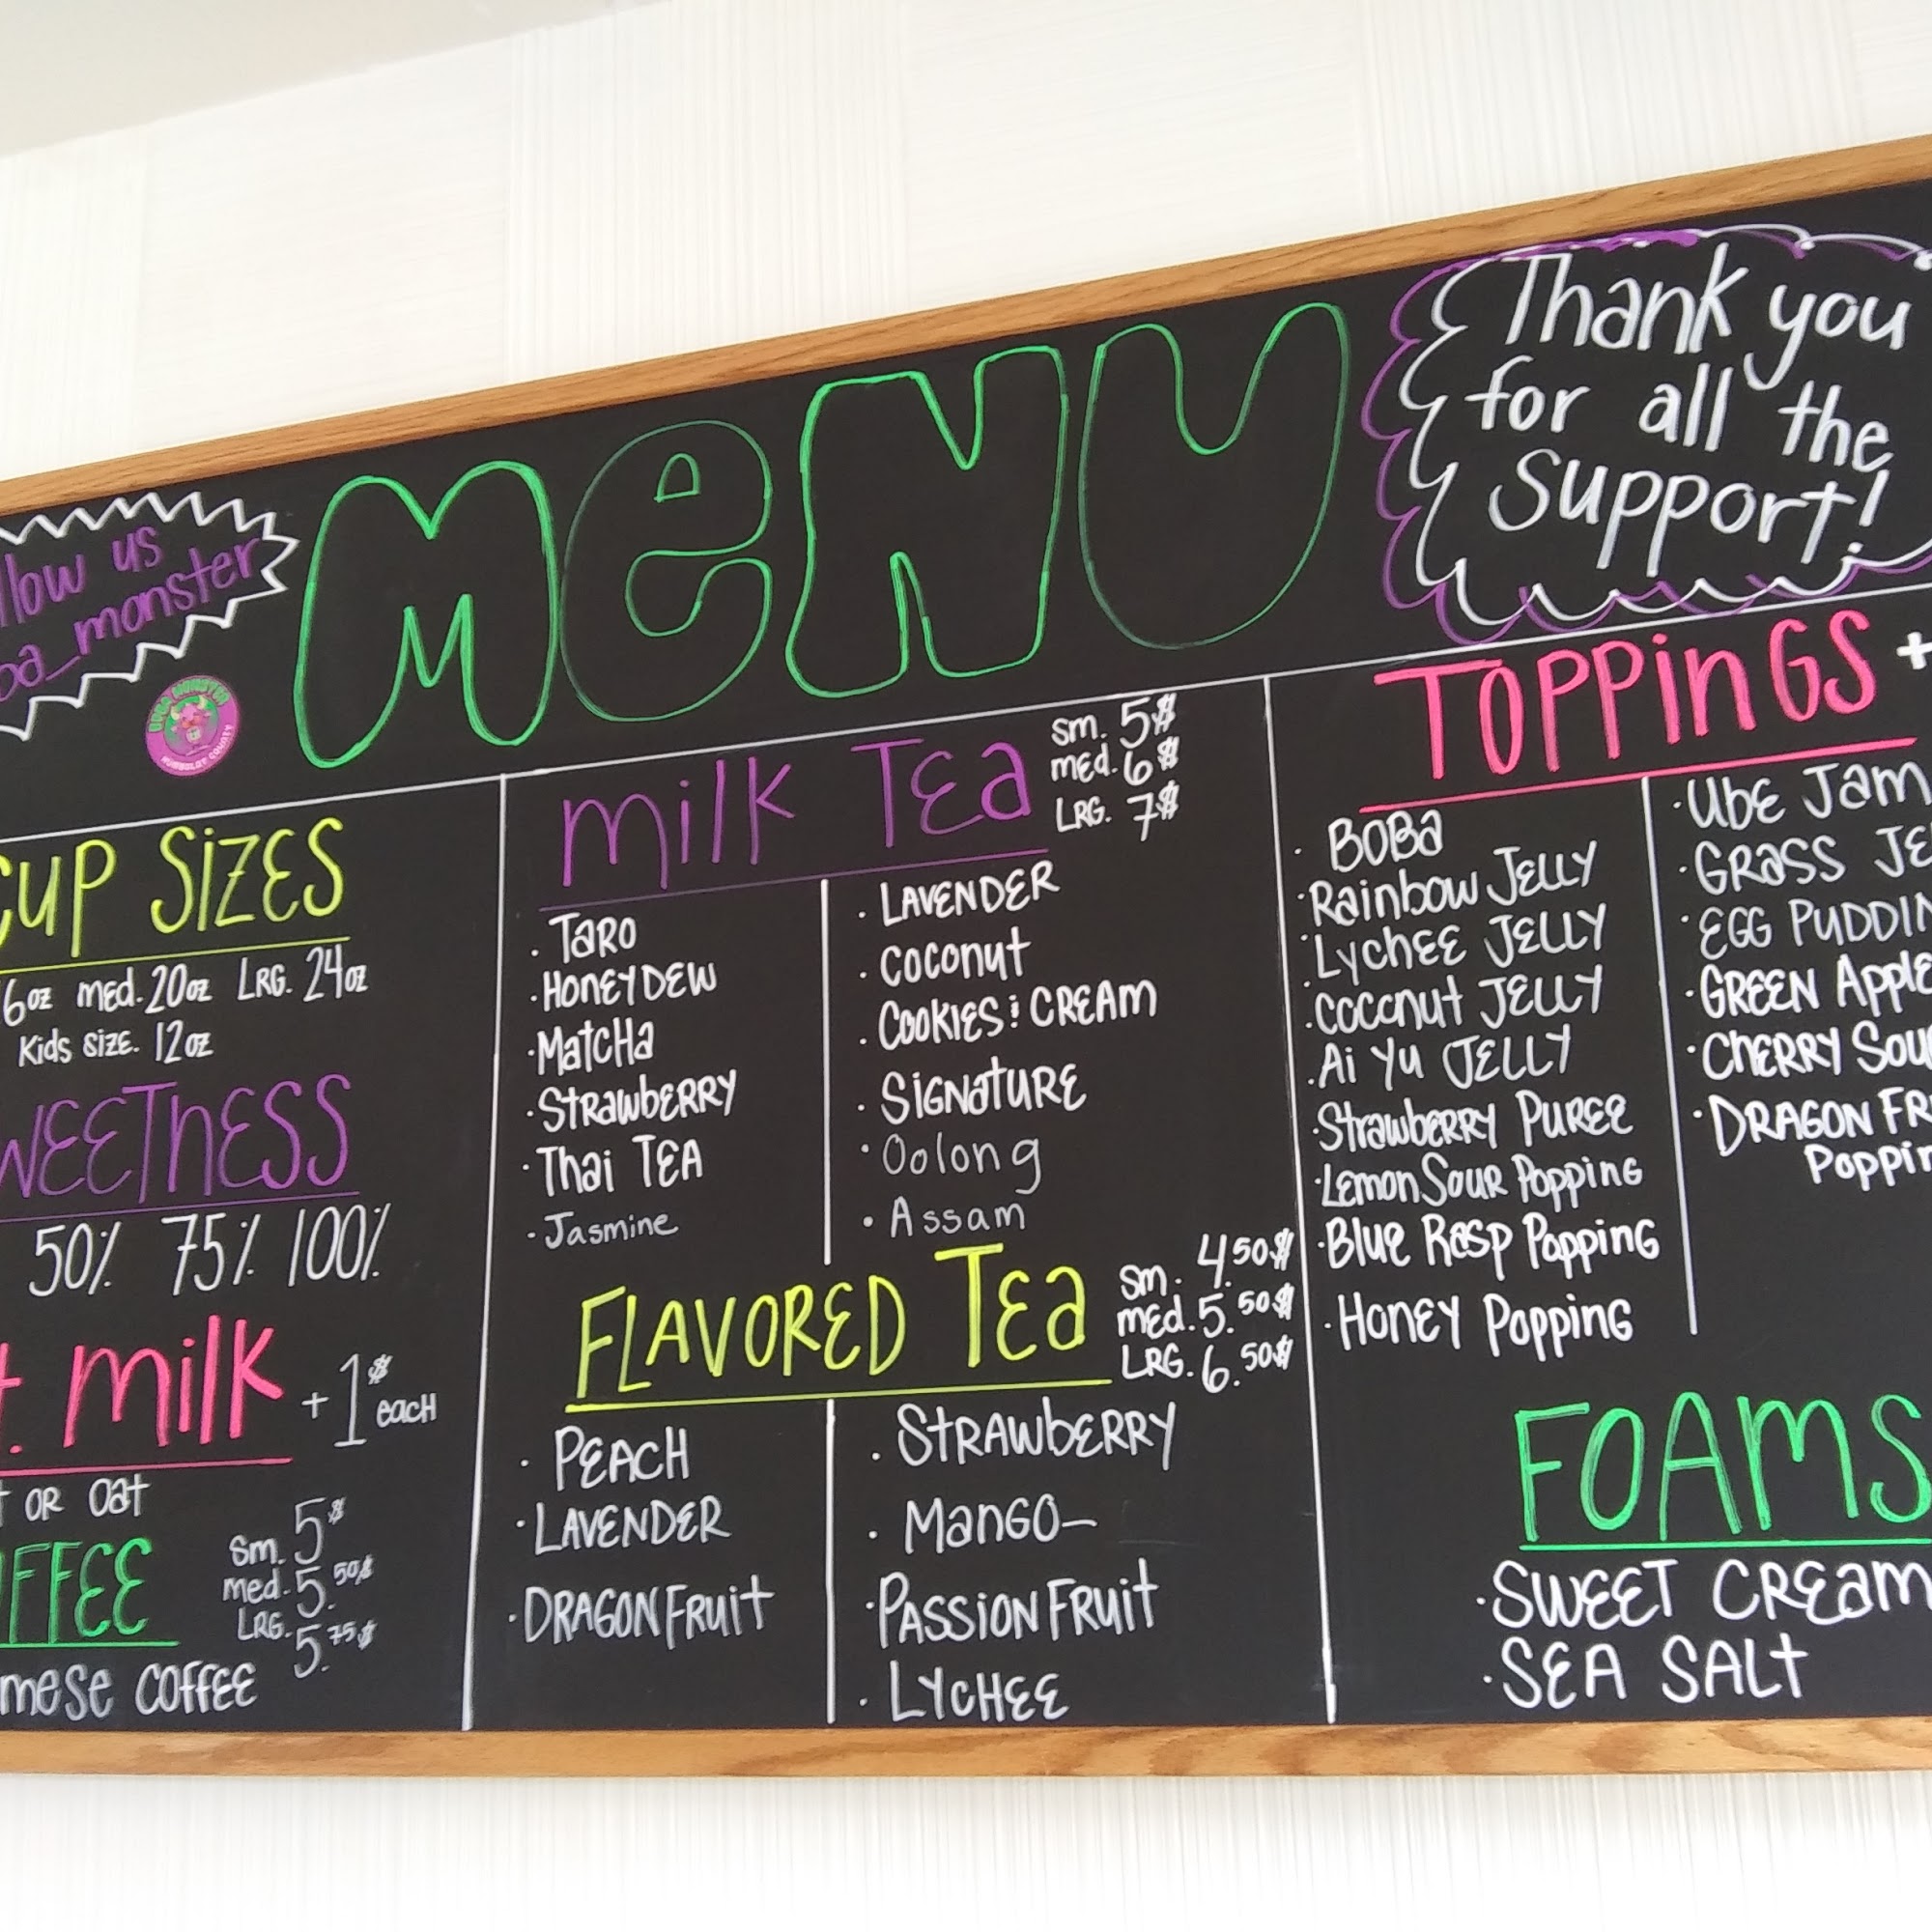 us
MENU
Thank you
for all the
support!
BOBA MONSTER
HUMBOLDT COUNTY
CUP SIZES
med. 20oz LRG. 24oz
Kids size. 12oz
50% 75% 100%
milk +1$ each
OR oat
sm. 5$
med. 5.50$
LRG. 5.75$
COFFEE
milk Tea
sm. 5$
med. 6$
LRG. 7$
· Taro
· Honeydew
· Matcha
· Strawberry
· Thai Tea
· Jasmine
· Lavender
· Coconut
· Cookies & Cream
· Signature
· Oolong
· Assam
Flavored Tea
sm. 4.50$
med. 5.50$
LRG. 6.50$
· Peach
· Lavender
· Dragon Fruit
· Strawberry
· Mango—
· Passion Fruit
· Lychee
TOPPINGS +
· Boba
· Rainbow Jelly
· Lychee Jelly
· Coconut Jelly
· Ai Yu Jelly
· Strawberry Puree
· Lemon Sour Popping
· Blue Rasp Popping
· Honey Popping
· Ube Jam
· Grass
· Egg
· Green Apple
· Cherry
· Dragon
FOAMS
· Sweet Cream
· Sea Salt